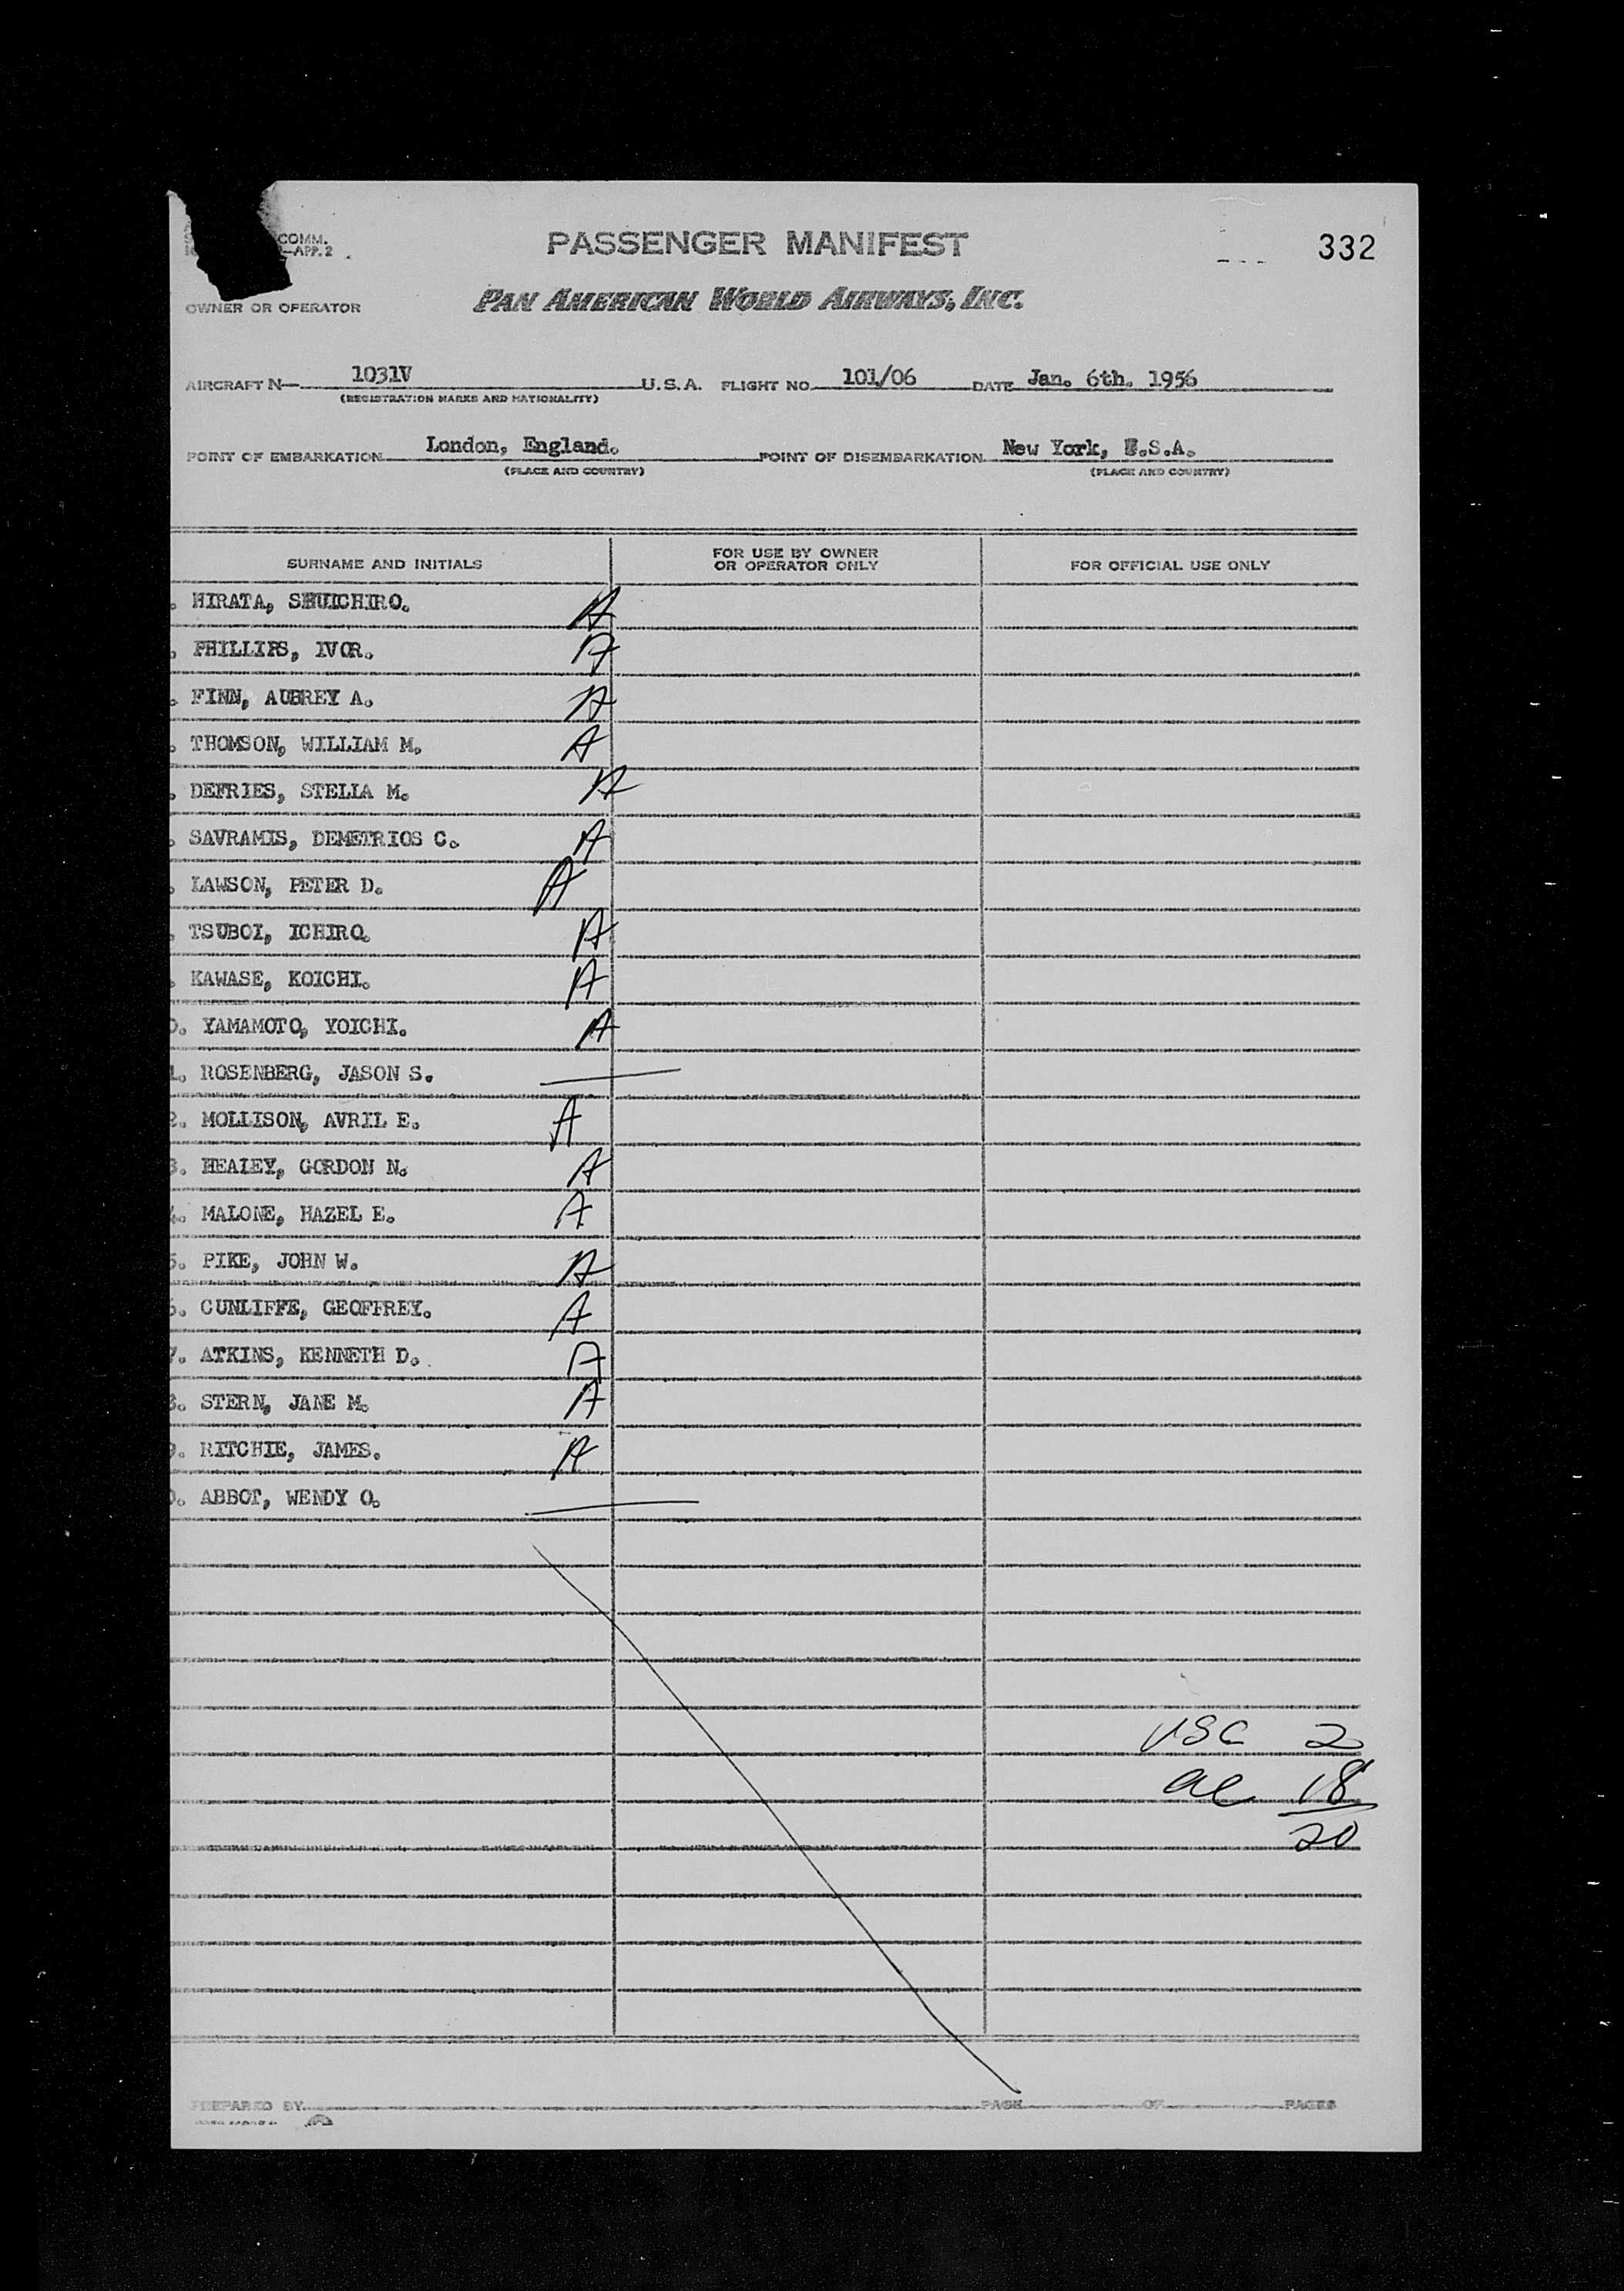 COMM.
APP. 2
PASSENGER MANIFEST
332
OWNER OR OPERATOR
PAN AMERICAN WORLD AIRWAYS, INC.
AIRCRAFT N— 1031V U.S.A. FLIGHT NO. 101/06 DATE Jan. 6th. 1956
(REGISTRATION MARKS AND NATIONALITY)
POINT OF EMBARKATION London, England. POINT OF DISEMBARKATION New York, U.S.A.
(PLACE AND COUNTRY) (PLACE AND COUNTRY)
SURNAME AND INITIALS FOR USE BY OWNER OR OPERATOR ONLY FOR OFFICIAL USE ONLY
. HIRATA, SHUICHIRO. A
. PHILLIPS, IVOR. A
. FINN, AUBREY A. A
. THOMSON, WILLIAM M. A
. DEFRIES, STELLA M. A
. SAVRAMIS, DEMETRIOS C. A
. LAWSON, PETER D. A
. TSUBOI, ICHIRO. A
. KAWASE, KOICHI. A
0. YAMAMOTO, YOICHI. A
1. ROSENBERG, JASON S. —
2. MOLLISON, AVRIL E. A
3. HEALEY, GORDON N. A
4. MALONE, HAZEL E. A
5. PIKE, JOHN W. A
6. CUNLIFFE, GEOFFREY. A
7. ATKINS, KENNETH D. A
8. STERN, JANE M. A
9. RITCHIE, JAMES. A
0. ABBOT, WENDY O. —
USC 2
al 18
20
PREPARED BY PAGE OF PAGES